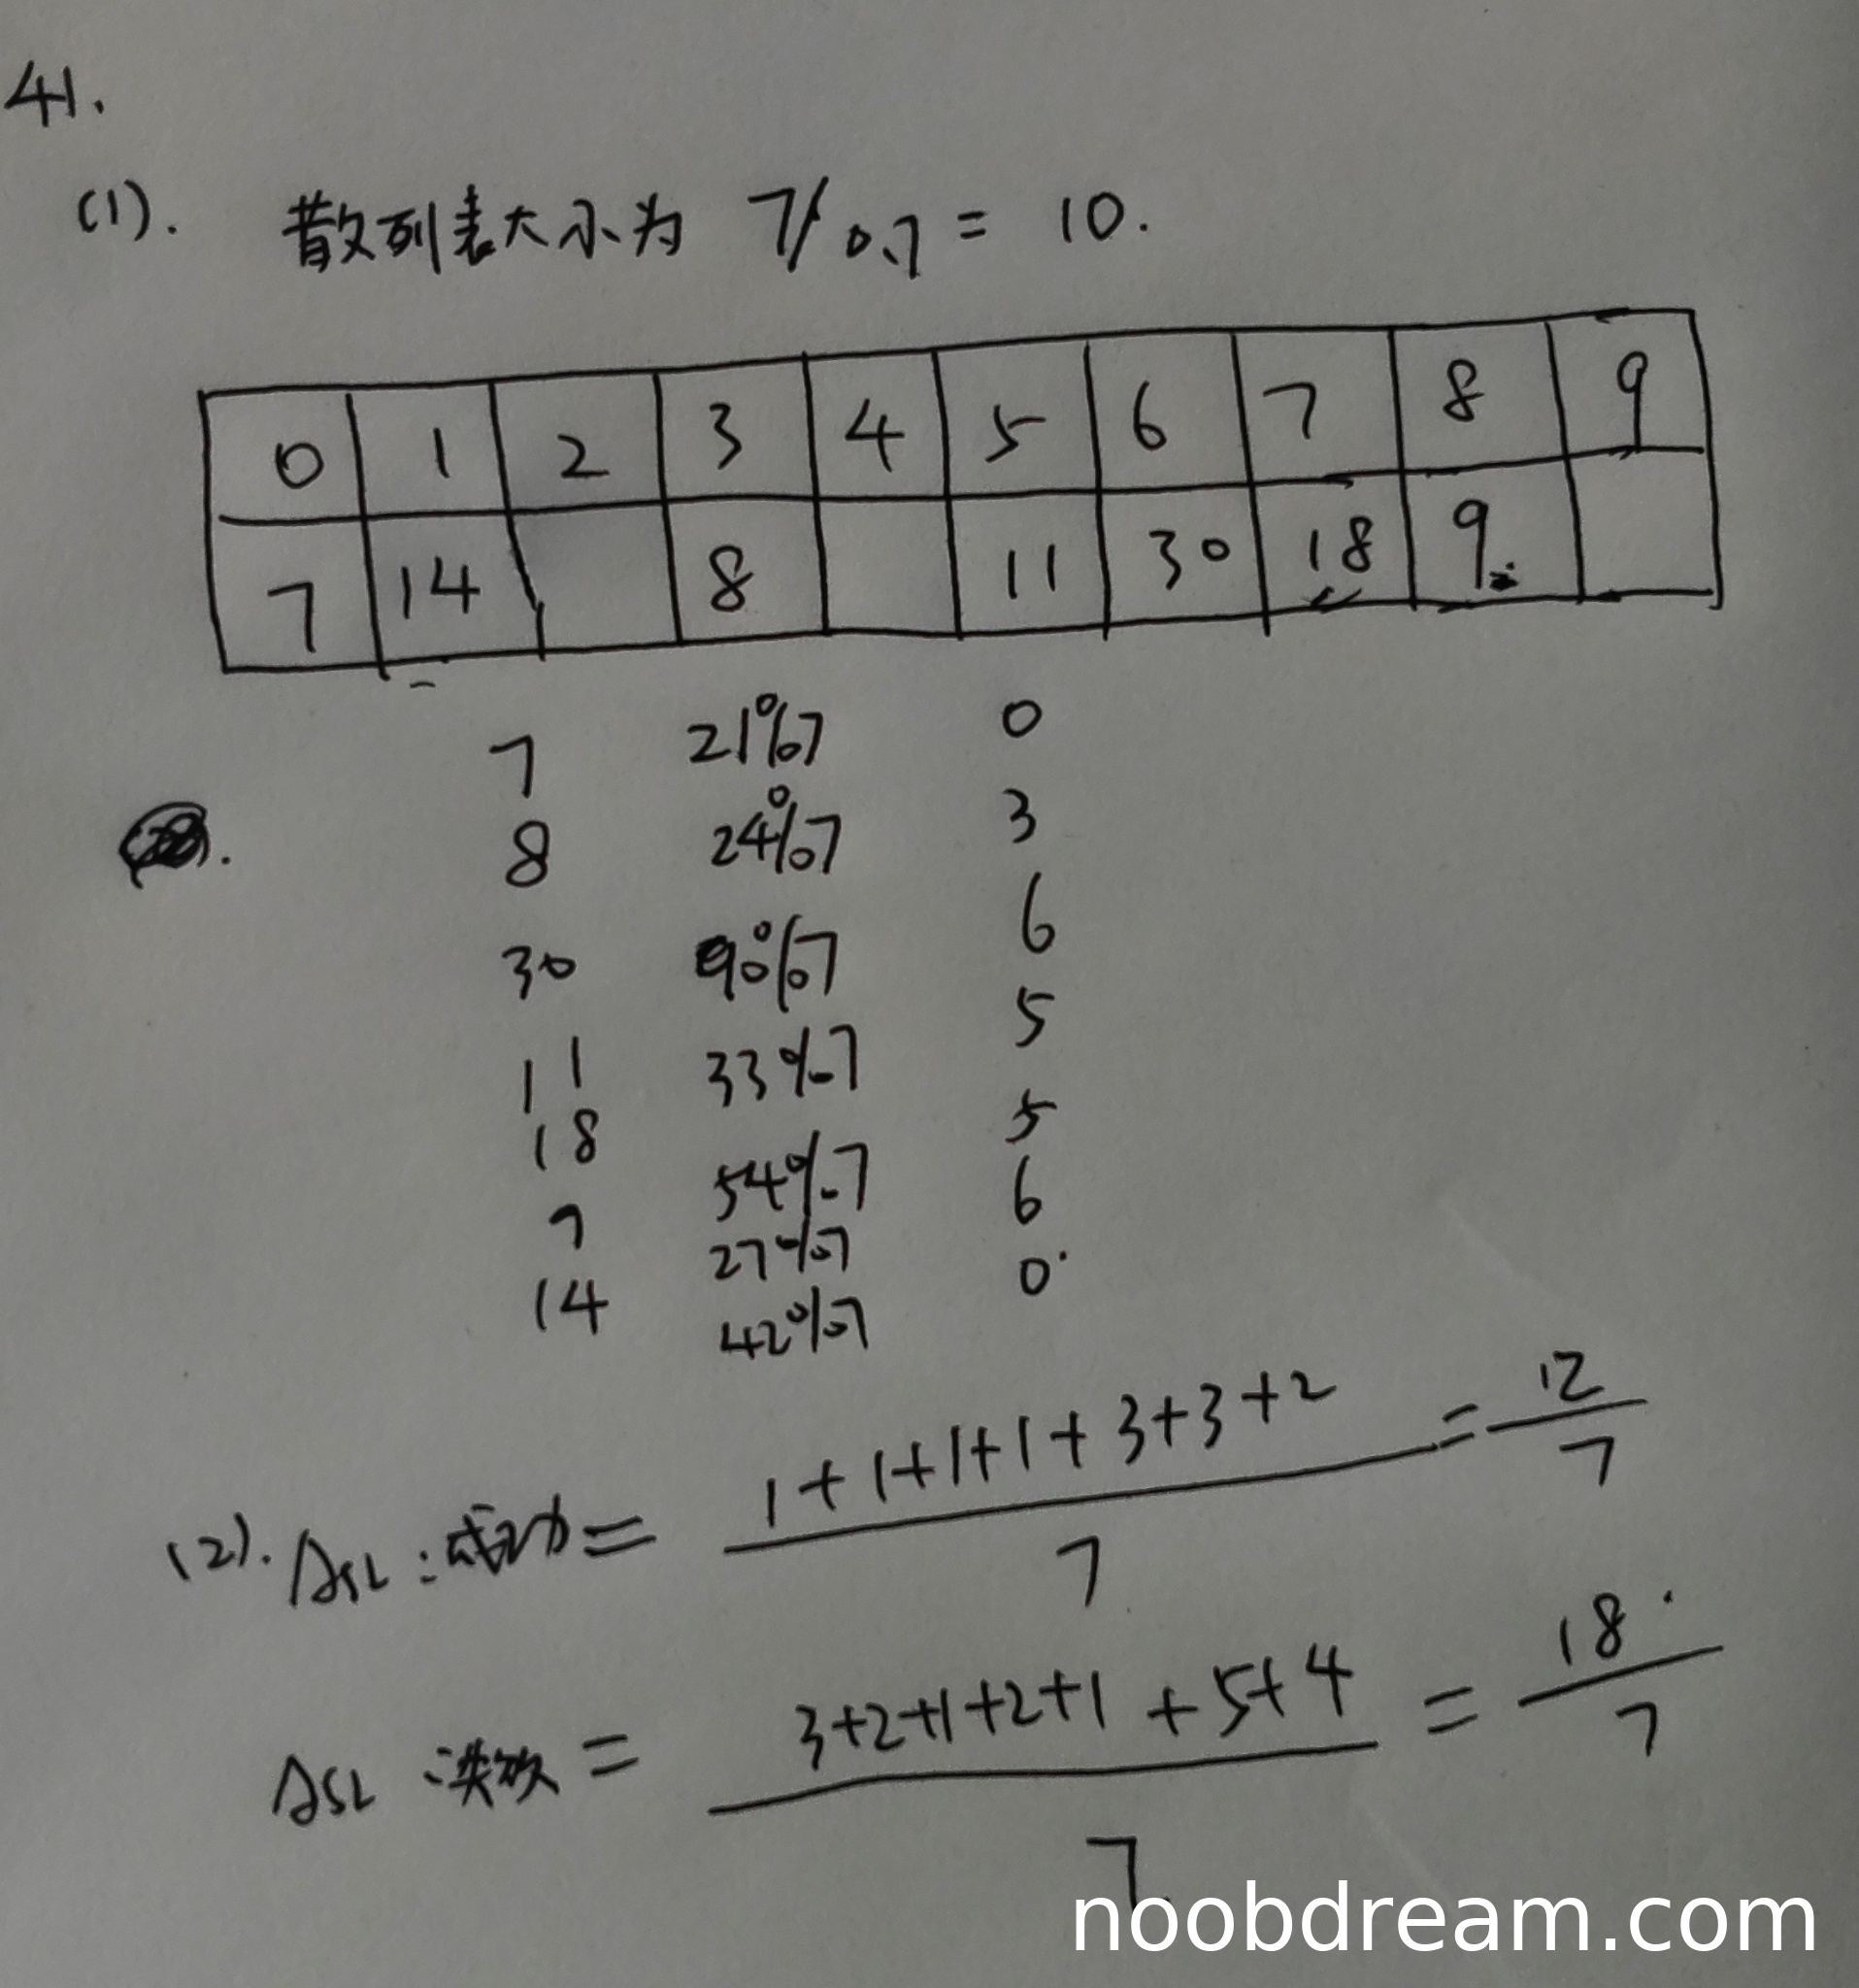 41.
(1). 散列表大小为 7/0.7 = 10.
0 1 2 3 4 5 6 7 8 9
7 14 8 11 30 18 9
7 21%7 0
8 24%7 3
30 90%7 6
11 33%7 5
18 54%7 5
9 27%7 6
14 42%7 0
(2). ASL:成功 = 1+1+1+1+3+3+2 / 7 = 12 / 7
ASL:失败 = 3+2+1+2+1+5+4 / 7 = 18 / 7
noobdream.com